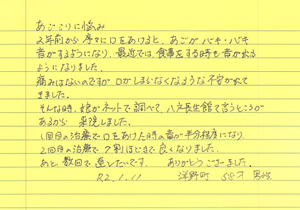 あごこりに悩み
2年前から 序々に口をあけると、あごが バキ・バキ
音がするようになり、最近では、食事をする時も音が出る
ようになりました。
痛みはないのですが 口がしまらなくなるような不安がでて
きました。
そんな時、娘がネットで調べて、八戸長生館て言うところが
あるから 来院しました。
1回目の治療で口をあけた時の音が半分程度になり、
2回目の治療で 7割ほどまで良くなりました。
あと 数回で 通いたいです。 ありがとうございました。
R2.1.11 洋野町 58才 男性